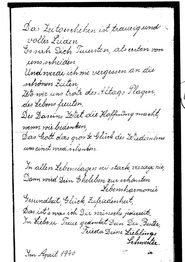 Das Zeitgeschehen ist traurig und
voller Leiden
Es sah Dich Teuersten, als ersten von
uns scheiden
Und werde ich vergessen an die
schönen Zeiten,
Ob mit uns Last des Alltags Plagen,
des Lebens freuten
Des Daseins Wert die Hoffnung macht,
wenn wir bedenken,
Das Gott das große Glück des Wiedersehens
uns einst wird
In allen Lebenslagen sei stark verzage nie,
Dann wird Dein Eheleben zur schönsten
Lebensharmonie
Gesundheit Glück Zufriedenheit,
Das ist's was ich Dir wünsche jederzeit.
In Treue gedenkt Dein
Frieda Deine Lieblings
Schwester
Im April 1940